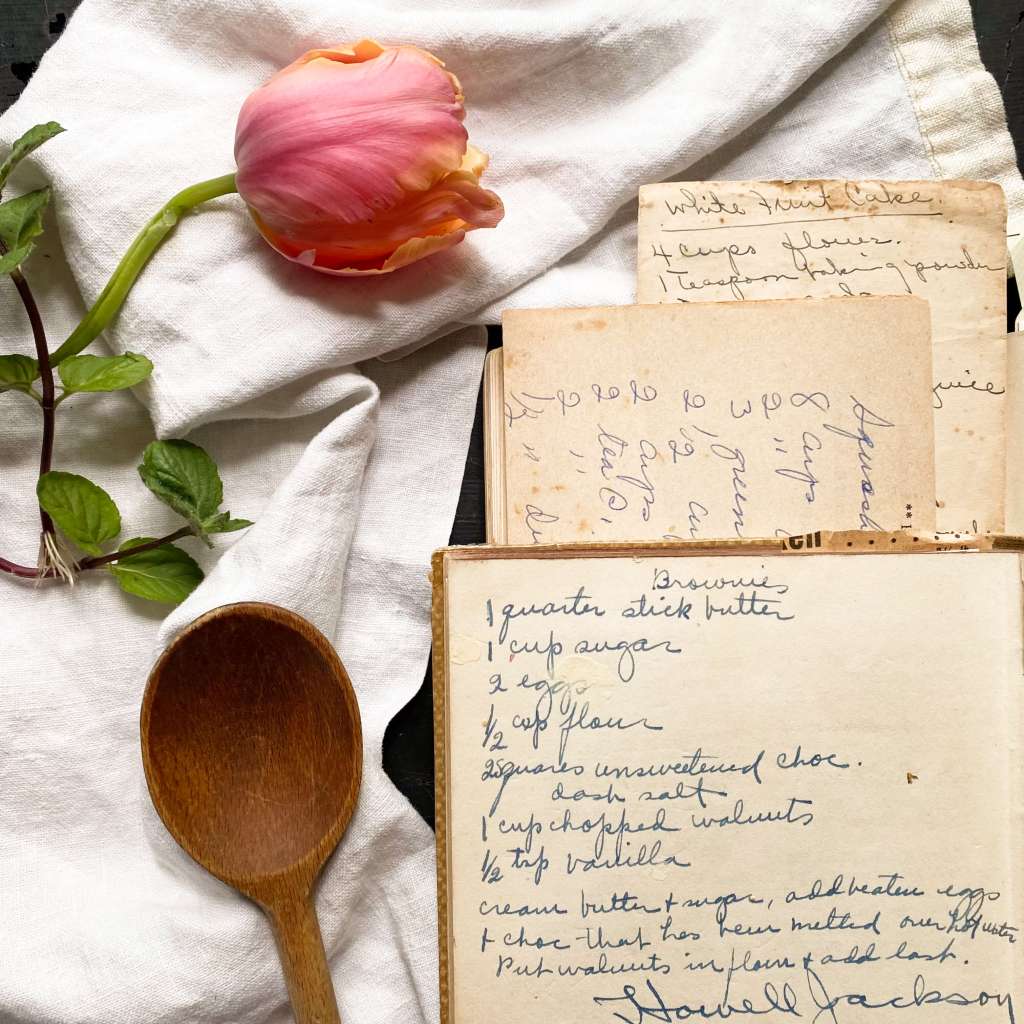 White Fruit Cake.
4 cups flour.
1 Teaspoon baking powder
juice
Squash
8 cups
2 "
3 green
2 1/2 cu
2 cups
2 tea
2 "
1/2 "
**
Brownies
1 quarter stick butter
1 cup sugar
2 eggs
1/2 cup flour
2 squares unsweetened choc.
dash salt
1 cup chopped walnuts
1/2 tsp vanilla
cream butter + sugar, add beaten eggs
+ choc that has been melted over hot water
Put walnuts in flour + add last.
Howell Jackson